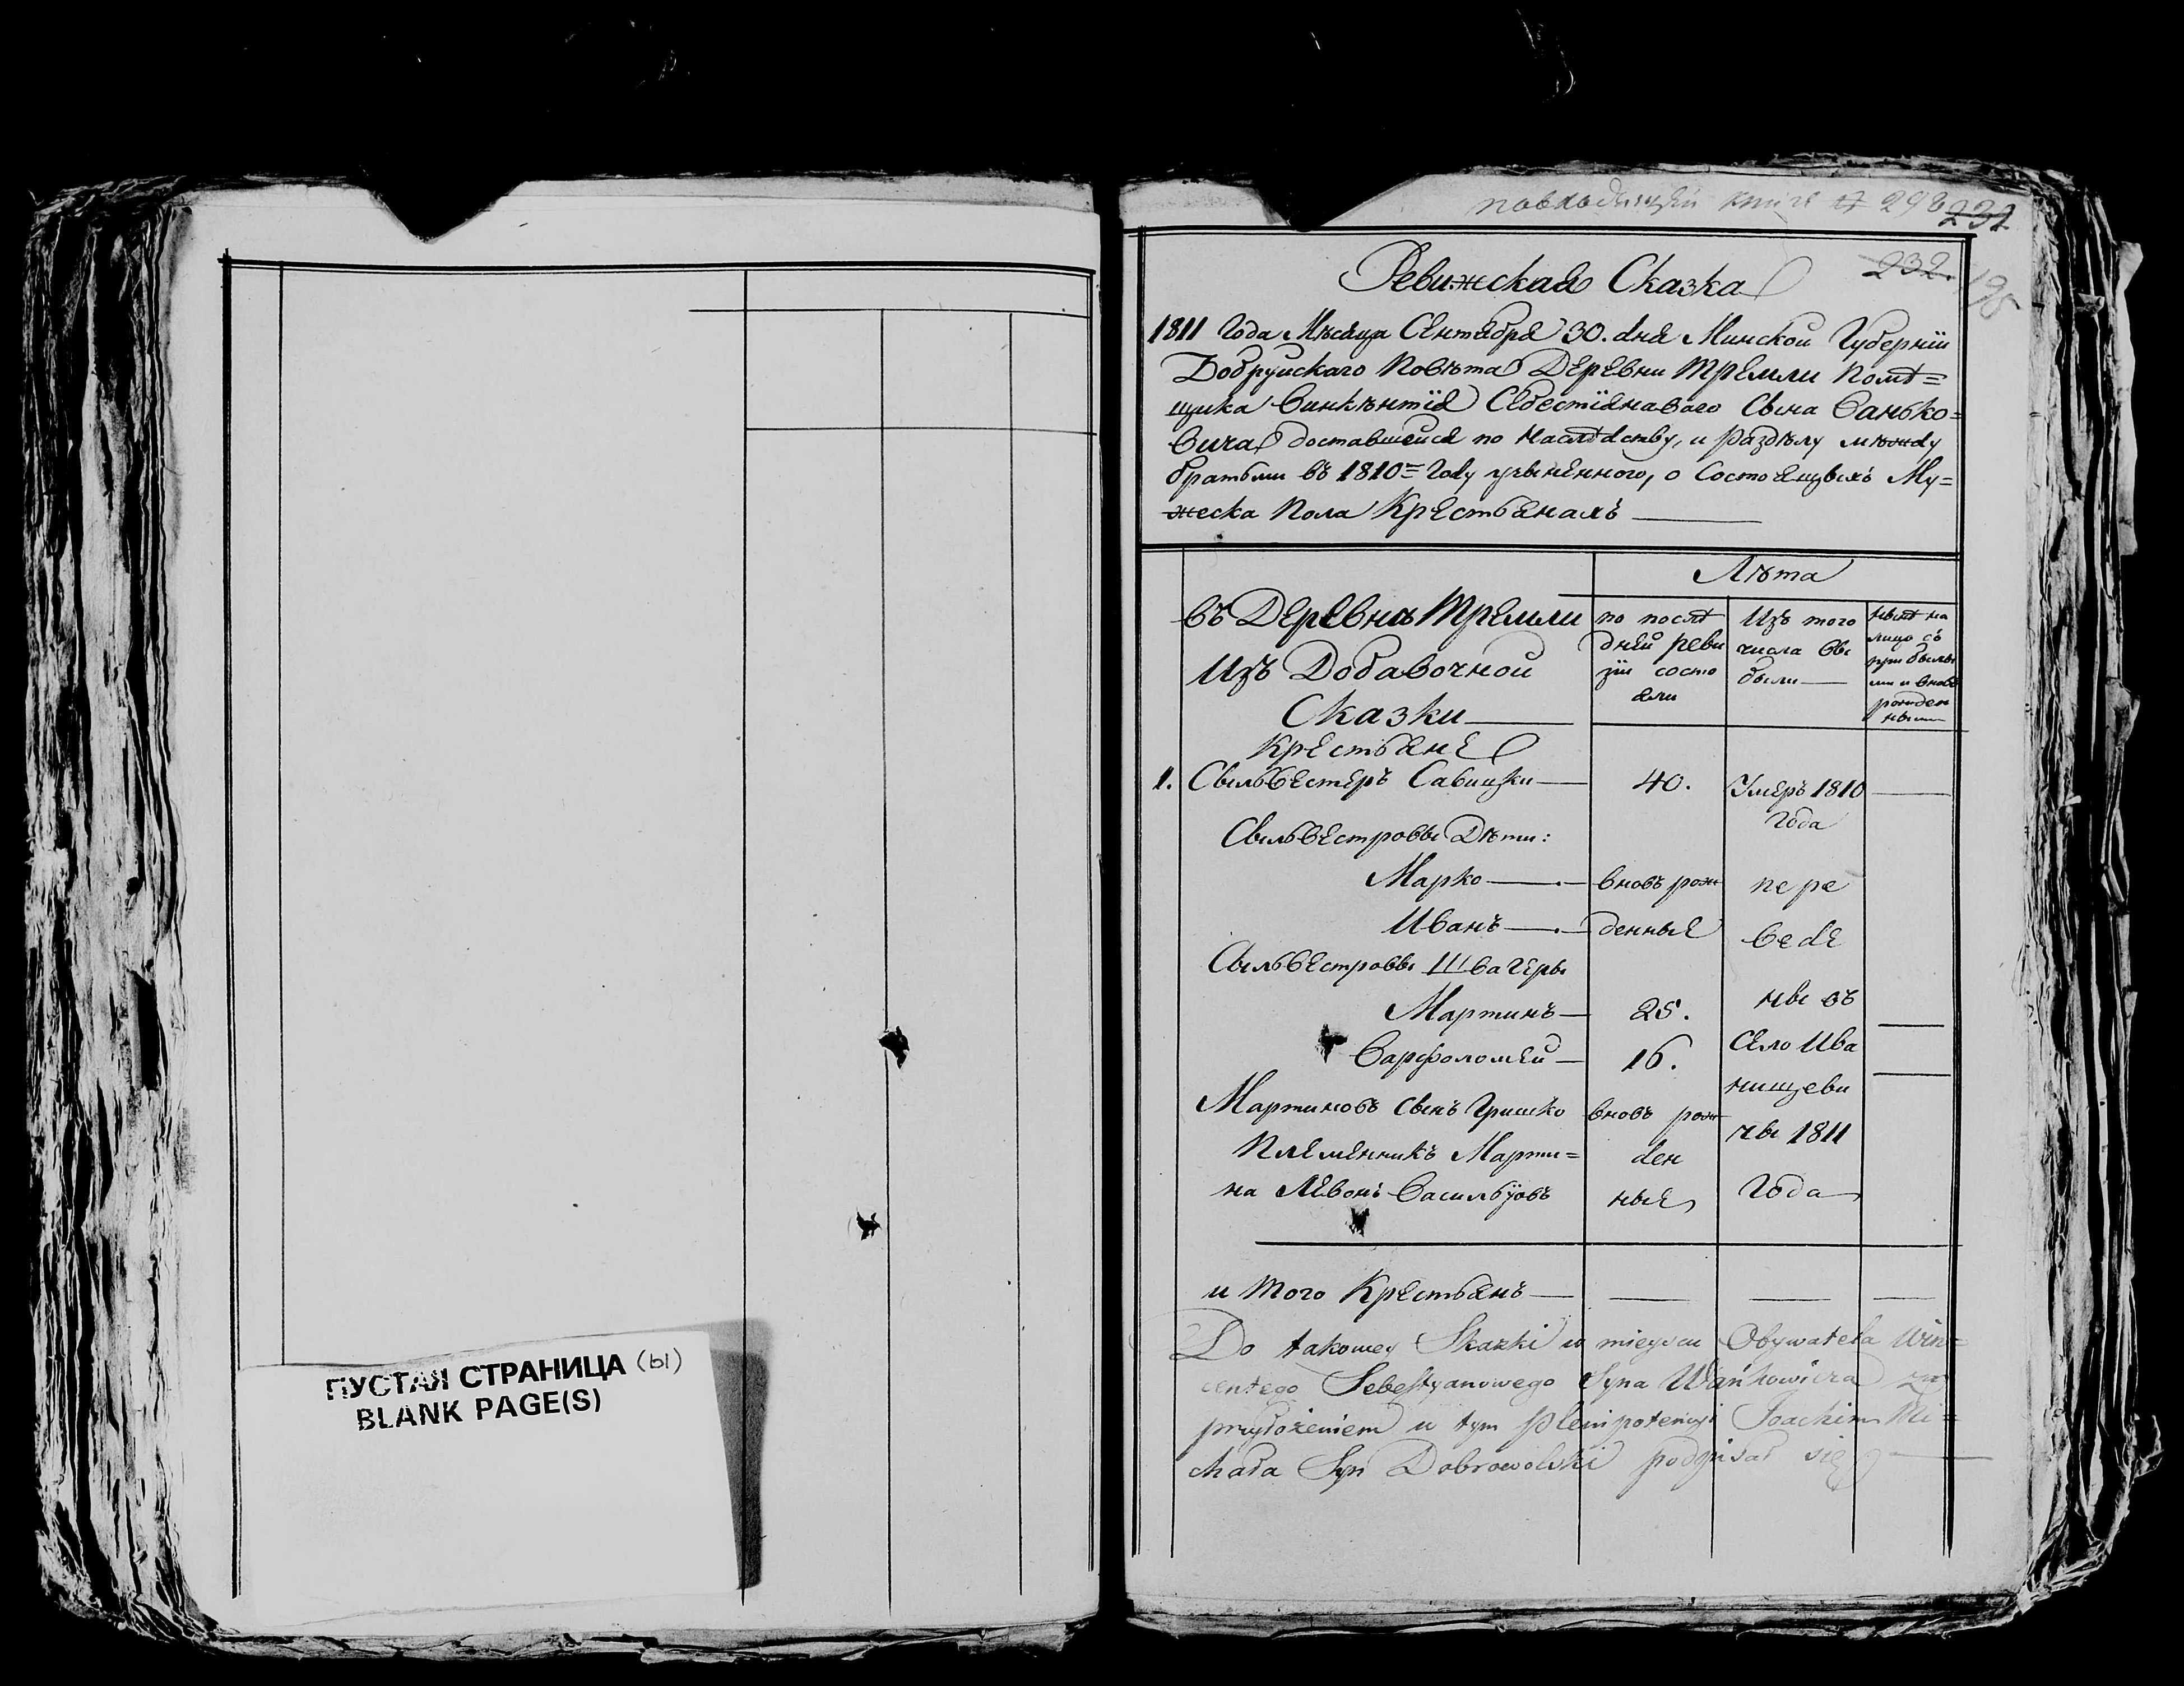 ПУСТАЯ СТРАНИЦА (ы)
BLANK PAGE(S)
232
232.
195
Ревижская Сказка
1811 Года Мѣсяца Сентября 30. дня Минской Губерніи
Бобруйскаго Повѣта Деревни Тремли Помѣ=
щика Винкѣнтія Себестіянавого Сына Ванько=
вича доставшейся по наслѣдству, и раздѣлу мѣжду
братьми въ 1810= Году учыненного, о состоящыхъ Му=
жеска Пола Крестьянахъ
Лѣта
въ Деревнѣ Тремли
Изъ Добавочной
Сказки
Крестьяне
по послѣ
дней реви
зіи состо
яли
Изъ того
числа вы
были
нынѣ на
лицо съ
прибылы
ми и вновь
рожден
ными
1. Сыльвестеръ Савицки 40. Умеръ 1810
Года
Сыльвестровы Дѣти:
Марко вновъ рож пере
Иванъ денные веде
Сыльвестровы Швагеры
Мартинъ 25. ны въ
Варфоломей 16. Село Ива
нищеви
Мартиновъ сынъ Гришко вновъ рож
чы 1811
Племенникъ Марти= ден
на Левонъ Васильӱовъ ные Года
и того Крестьянъ
Do takowey Skazki w mieyscu Obywatela Win=
centego Sebestyanowego Syna Wańkowicza za
przyłożeniem u tym Plenipotencyi Joachim Mi=
chała Syn Dobrowolski podpisał się